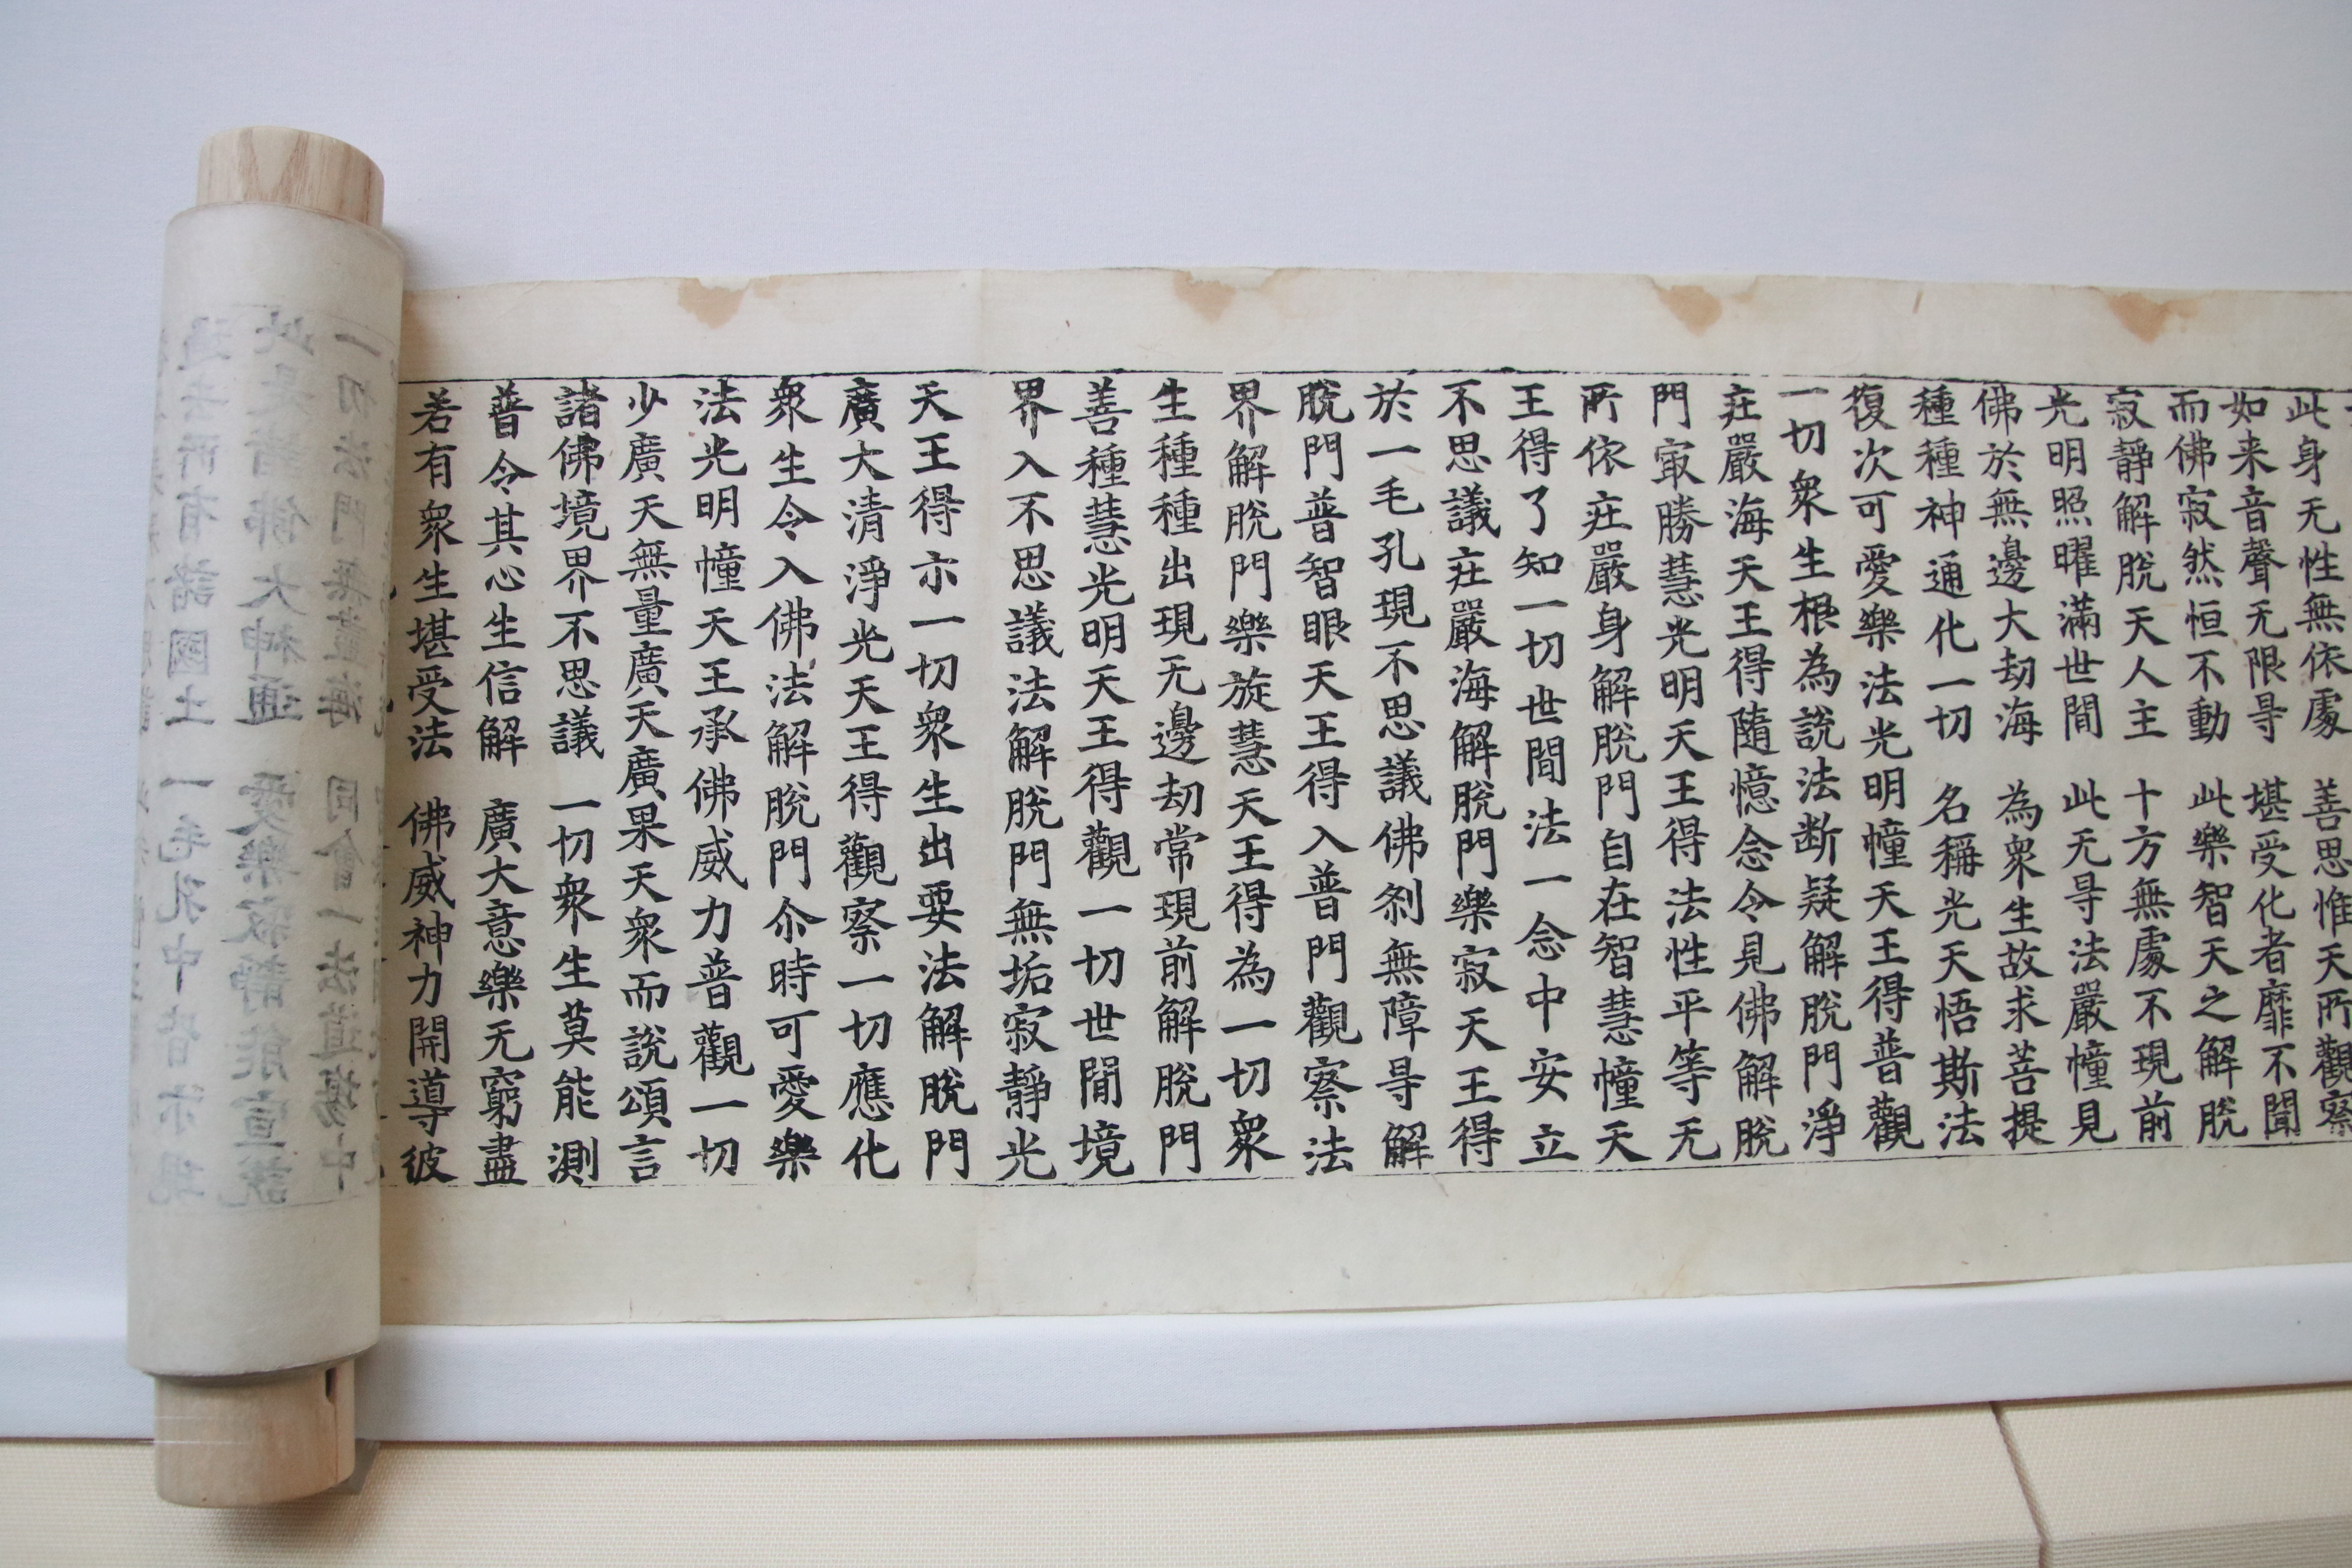 此身无性無依處　善思惟天所觀察
如来音聲无限㝵　堪受化者靡不聞
而佛寂然恒不動　此樂智天之解脫
寂靜解脫天人主　十方無處不現前
光明照曜滿世間　此无㝵法嚴幢見
佛於無邊大劫海　為衆生故求菩提
種種神通化一切　名稱光天悟斯法
復次可愛樂法光明幢天王得普觀
一切衆生根為說法断疑解脫門淨
庄嚴海天王得隨憶念令見佛解脫
門㝡勝慧光明天王得法性平等无
所依庄嚴身解脫門自在智慧幢天
王得了知一切世間法一念中安立
不思議庄嚴海解脫門樂寂天王得
於一毛孔現不思議佛刹無障㝵解
脫門普智眼天王得入普門觀察法
界解脫門樂旋慧天王得為一切衆
生種種出現无邊劫常現前解脫門
善種慧光明天王得觀一切世間境
界入不思議法解脫門無垢寂靜光
天王得示一切衆生出要法解脫門
廣大清淨光天王得觀察一切應化
衆生令入佛法解脫門尒時可愛樂
法光明幢天王承佛威力普觀一切
少廣天無量廣天廣果天衆而說頌言
諸佛境界不思議　一切衆生莫能測
普令其心生信解　廣大意樂无窮盡
若有衆生堪受法　佛威神力開導彼
一切法門無盡海　同會一法道場中
此是諸佛大神通　愛樂寂靜能宣說
過去所有諸國土　一毛孔中皆示現